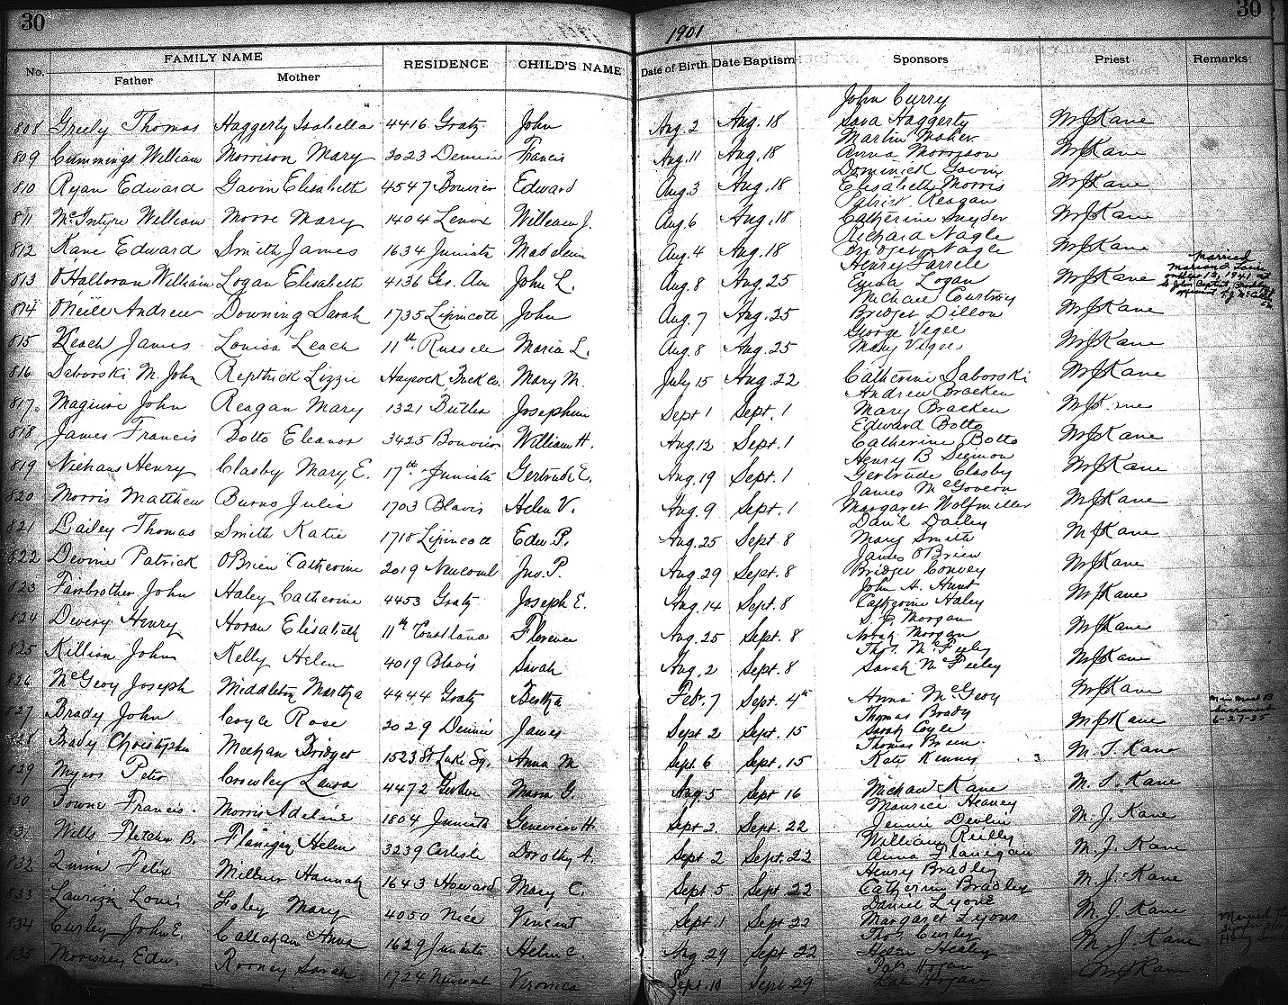 30
1901
30
No.
FAMILY NAME
Father
Mother
RESIDENCE
CHILD'S NAME
Date of Birth
Date Baptism
Sponsors
Priest
Remarks
808 Greely Thomas Haggerty Isabella 4416 Gratz John Aug. 2 Aug. 18 John Curry Sara Haggerty M J Kane
809 Cummings William Morrison Mary 3023 Francis Aug. 11 Aug. 18 Martin Maher Anna Morrison M J Kane
810 Ryan Edward Gavin Elisabeth 4547 Bouvier Edward Aug. 3 Aug. 18 Dominick Gavin Elisabeth Morris M J Kane
811 McIntyre William Moore Mary 1404 Lenox William J. Aug. 6 Aug. 18 Patrick Reagan Catherine Snyder M J Kane
812 Kane Edward Smith James 1634 Juniata Madelein Aug. 4 Aug. 18 Richard Nagle Bridget Nagle M J Kane
813 O'Halloran William Logan Elisabeth 4136 Ger. Av John L. Aug. 8 Aug. 25 Henry Logan M J Kane Married
814 O'Neill Andrew Downing Sarah 1735 Lipincott John Aug. 7 Aug. 25 Michael Courtney Bridget Dillon M J Kane
815 Leach James Louisa Leach 11th Russell Maria L. Aug. 8 Aug. 25 George Mary M J Kane
816 Saborski M. John Lizzie Haycock, Buck Co. Mary M. July 15 Aug. 22 Catherine Saborski M J Kane
817. Maguire John Reagan Mary 1321 Butler Josephine Sept 1 Sept. 1 Andrew Bracken Mary Bracken M J Kane
818 James Francis Botto Eleanor 3425 Bouvier William H. Aug. 12 Sept. 1 Edward Botto Catherine Botto M J Kane
819 Niehaus Henry Clasby Mary E. 17th Juniata Gertrude E. Aug. 19 Sept. 1 Henry B Gertrude Clasby M J Kane
820 Morris Matthew Burns Julia 1703 Blavis Helen V. Aug. 9 Sept. 1 James McGovern Margaret Wolfmiller M J Kane
821 Dailey Thomas Smith Katie 1718 Lipincott Edw. P. Aug. 25 Sept 8 Dan'l Dailey Mary Smith M J Kane
822 Devine Patrick O'Brien Catherine 2019 Newcomb Jno. P. Aug. 29 Sept. 8 James O'Brien Bridget Convey M J Kane
823 Fairbrother John Haley Catherine 4453 Gratz Joseph E. Aug. 14 Sept. 8 John A. Hunt Catherine Haley M J Kane
824 Devery Henry Horan Elisabeth 11th Florence Aug. 25 Sept. 8 Morgan Norah Morgan M J Kane
825 Killion John Kelly Helen 4019 Blavis Sarah Aug. 2 Sept. 8 Thos. McFeeley Sarah McFeeley M J Kane
826 McGevy Joseph Middleton Martha 4444 Gratz Bertha Feb. 7 Sept. 4th Anna McGevy M J Kane
827 Brady John Coyle Rose 3029 James Sept. 2 Sept. 15 Thomas Brady Sarah Coyle M J Kane 6-27-25
828 Brady Christopher Meehan Bridget 1523 St Luke Sq. Anna M Sept. 6 Sept. 15 Thomas Kate Kenney M. J. Kane
829 Myers Peter Crowley Laura 4472 Maria G. Aug. 5 Sept 16 Michael Kane M. J. Kane
830 Towne Francis. Morris Adeline 1804 Juniata Genevieve H. Sept 2. Sept. 22 Maurice Heavey Jennie Devlin M. J. Kane
831 Wills Fletcher B. Flanigan Helen 3239 Carlisle Dorothy A. Sept 2 Sept. 22 William Reilly Anna Flanigan M. J. Kane
832 Quinn Felix Hannah 1643 Howard Mary C. Sept. 5 Sept 22 Henry Bradley Catherine Bradley M. J. Kane
833 Louis Foley Mary 4050 Nice Vincent Sept. 1 Sept 22 Daniel Lyons Margaret Lyons M. J. Kane
834 Curley John E. Callahan Anna 1629 Juniata Helen C. Aug 29 Sept. 22 Thos Curley Helen Healey M. J. Kane
835 Morrissey Edw. Rooney Sarah 1724 Newcomb Veronica Sept. 10 Sept. 29 Pat. Hogan Hogan M J Kane